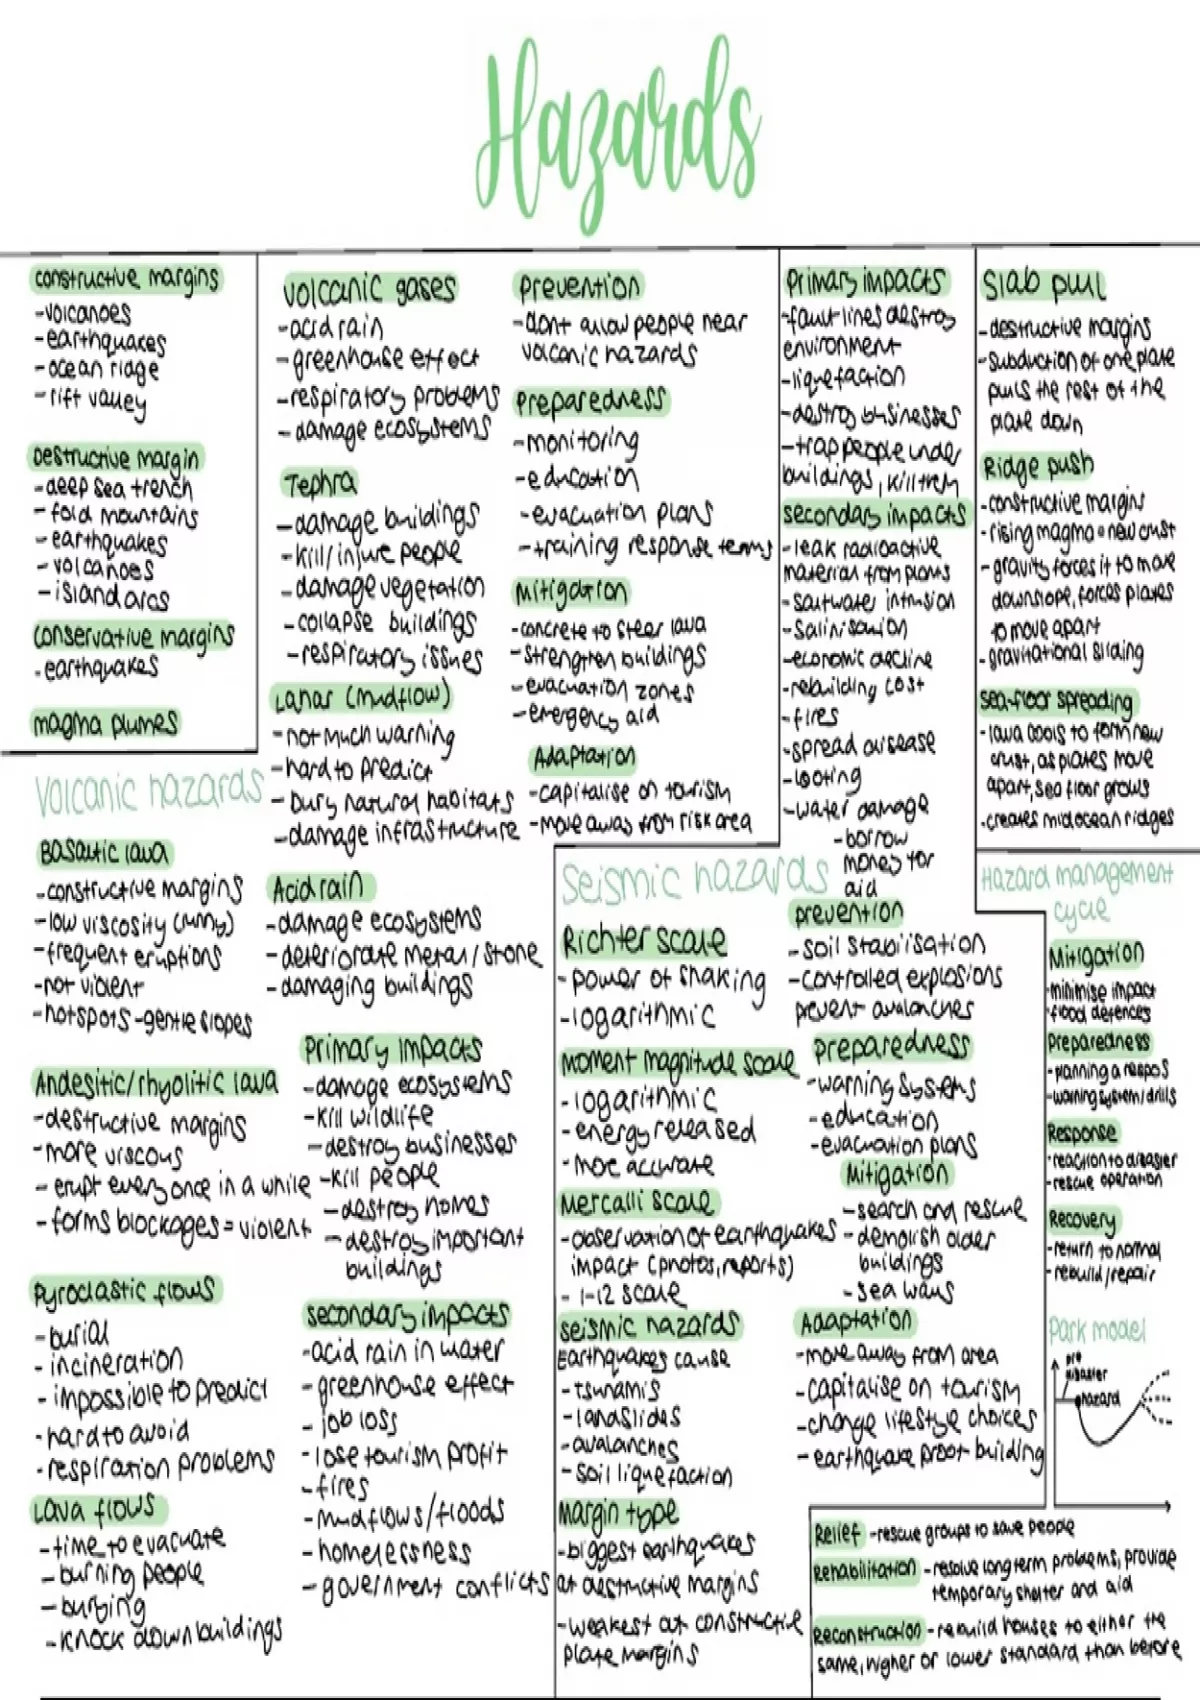 Hazards
constructive margins
-volcanoes
-earthquakes
-ocean ridge
-rift valley
Destructive margin
-deep sea trench
-fold mountains
-earthquakes
-volcanoes
-island arcs
conservative margins
-earthquakes
magma plumes
Volcanic hazards
Basaltic lava
-constructive margins
-low viscosity (runny)
-frequent eruptions
-not violent
-hotspots-gentle slopes
Andesitic/rhyolitic lava
-destructive margins
-more viscous
-erupt every once in a while
-forms blockages = violent
Pyroclastic flows
-burial
-incineration
-impossible to predict
-hard to avoid
-respiration problems
Lava flows
-time to evacuate
-burning people
-burying
-knock down buildings
volcanic gases
-acid rain
-greenhouse effect
-respiratory problems
-damage ecosystems
Tephra
-damage buildings
-kill/injure people
-damage vegetation
-collapse buildings
-respiratory issues
Lahar (mudflow)
-not much warning
-hard to predict
-bury natural habitats
-damage infrastructure
Acid rain
-damage ecosystems
-deteriorate metal/stone
-damaging buildings
Primary Impacts
-damage ecosystems
-kill wildlife
-destroy businesses
-kill people
-destroy homes
-destroy important
buildings
secondary impacts
-acid rain in water
-greenhouse effect
-job loss
-lose tourism profit
-fires
-mudflows/floods
-homelessness
-government conflicts
prevention
-dont allow people near
volcanic hazards
Preparedness
-monitoring
-education
-evacuation plans
-training response teams
Mitigation
-concrete to steer lava
-strengthen buildings
-evacuation zones
-emergency aid
Adaptation
-capitalise on tourism
-move away from risk area
Seismic hazards
Richter scale
-power of shaking
-logarithmic
Moment magnitude scale
-logarithmic
-energy released
-more accurate
Mercalli scale
-observation of earthquakes
impact (photos, reports)
- 1-12 scale
seismic hazards
Earthquakes cause
-tsunamis
-landslides
-avalanches
-soil liquefaction
Margin type
-biggest earthquakes
at destructive margins
-weakest at constructive
plate margins
Primary impacts
-fault lines destroy
environment
-liquefaction
-destroy businesses
-trap people under
buildings, kill them
secondary impacts
-leak radioactive
material from plants
-saltwater intrusion
-salinisation
-economic decline
-rebuilding cost
-fires
-spread disease
-looting
-water damage
-borrow
money for
aid
prevention
-soil stabilisation
-controlled explosions
prevent avalanches
preparedness
-warning systems
-education
-evacuation plans
Mitigation
-search and rescue
-demolish older
buildings
-sea walls
Adaptation
-move away from area
-capitalise on tourism
-change lifestyle choices
-earthquake proof building
Slab pull
-destructive margins
-subduction of one plate
pulls the rest of the
plate down
Ridge push
-constructive margins
-rising magma = new crust
-gravity forces it to move
downslope, forces plates
to move apart
-gravitational sliding
sea-floor spreading
-lava cools to form new
crust, as plates move
apart, sea floor grows
-creates mid ocean ridges
Hazard management
cycle
Mitigation
-minimise impact
-flood defences
Preparedness
-planning a respos
-warning system/drills
Response
-reaction to disaster
-rescue operation
Recovery
-return to normal
-rebuild/repair
Park model
pre
disaster
hazard
Relief -rescue groups to save people
Rehabilitation -resolve long term problems, provide
temporary shelter and aid
Reconstruction -rebuild houses to either the
same, higher or lower standard than before